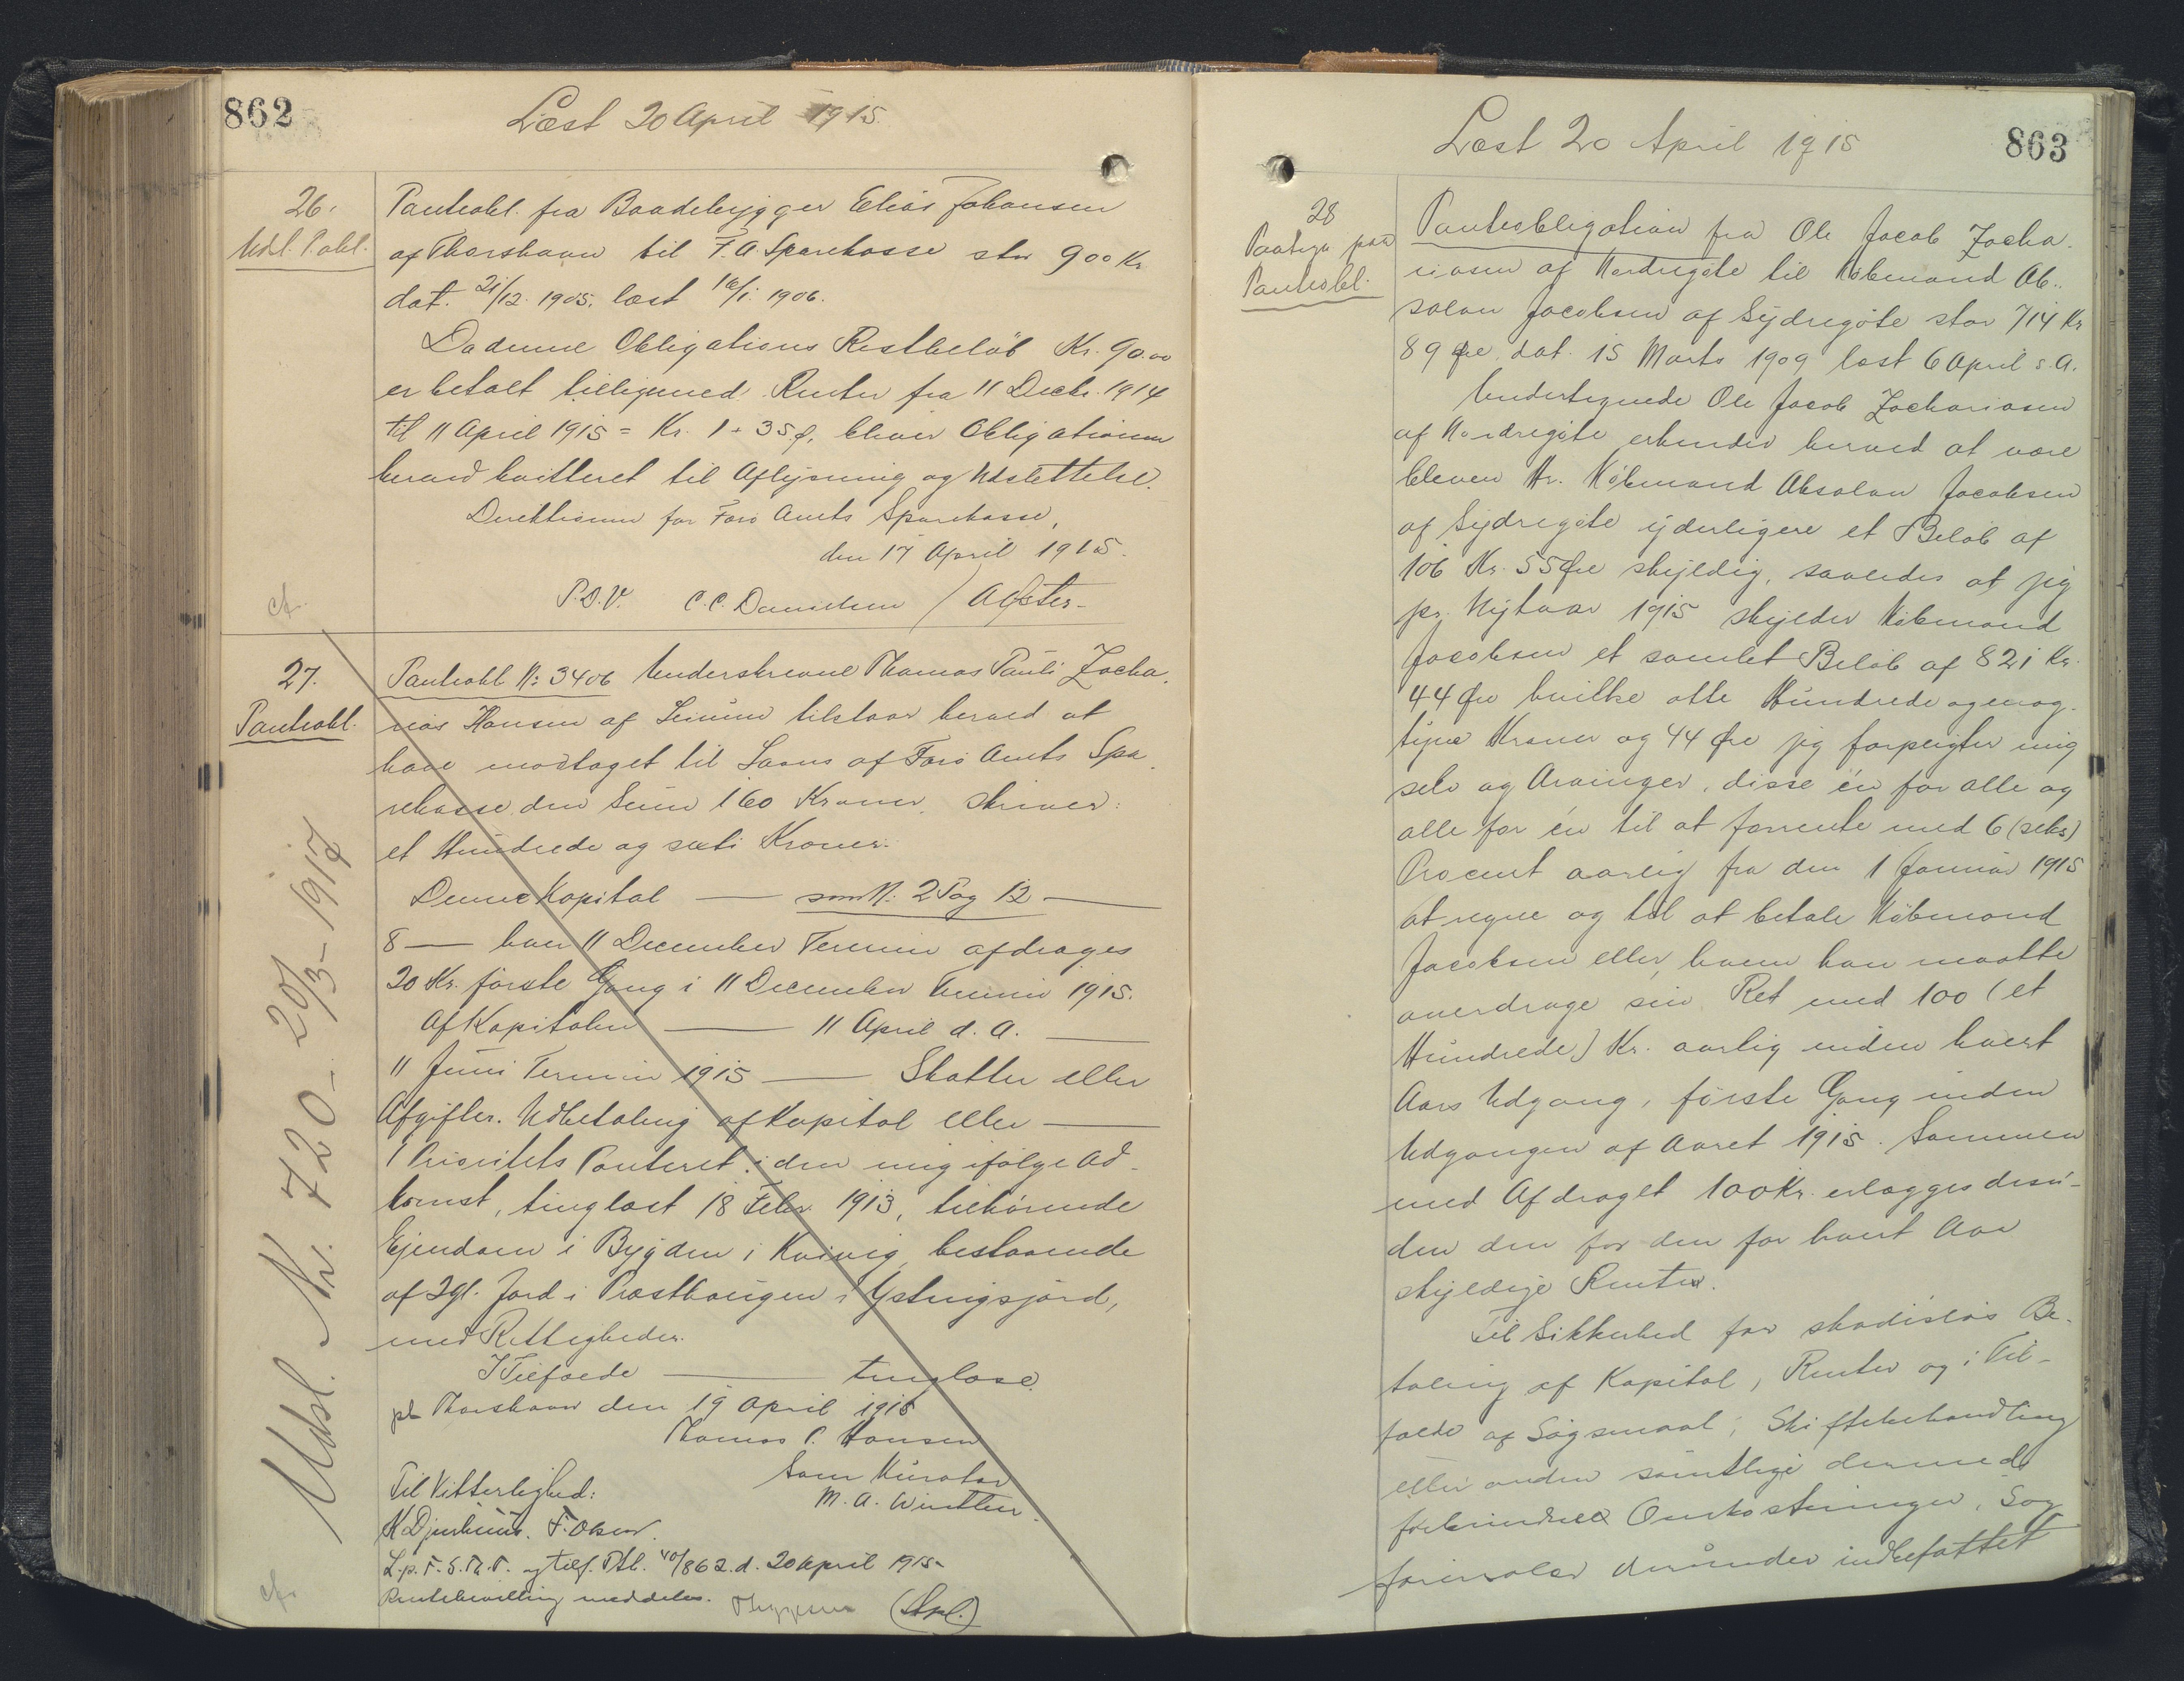 862
Læst 20 April 1915.
26.
Udl. P. obl.
Panteobl. fra Baadebygger Elias Johansen
af Thorshavn til F. A. Sparekasse stor 900 Kr
dat. 21/12. 1905. læst 16/1. 1906.
Da denne Obligations Restbeløb Kr. 90.00
er betalt tilligemed Renter fra 11 Decbr. 1914
til 11 April 1915 = Kr. 1 + 35 ø, bliver Obligationen
herved kvitteret til Aflysning og Udslettelse.
Direktionen for Færø Amts Sparekasse,
den 17 April 1915.
P. D. V. C. C. Danielsen /
27.
Panteobl.
Panteobl No 3406 Underskrevne Thomas Pauli Zacha-
rias Hansen af Leinum tilstaar herved at
have modtaget til Laans af Færø Amts Spa-
rekasse den Sum 160 Kroner, skriver:
et Hundrede og seksti Kroner.
Denne Kapital — som N: 2 Pag 12 —
8 — hver 11 December Termin afdrages
20 Kr. første Gang i 11 December Termin 1915.
Af Kapitalen — 11 April d. A. —
11 Juni Termin 1915 — Skatter eller
Afgifter. Udbetaling af Kapital eller —
1 Prioritets Panteret i den mig ifølge Ad-
komst, tinglæst 18 Febr. 1913, tilhørende
Ejendom i Bygden i Kvivig, bestaaende
af 2 gl. Jord i Præsthaugen i Ystingsjord,
med Rettigheder.
I Tilfælde — tinglæse.
pt Thorshavn den 19 April 1915
Thomas P. Hansen
Som Kurator
M. A. Winther.
Til Vitterlighed:
K Djurhuus. F. Olsen.
L. p. F. S. R. P. og tilf. Ptb. 40/862. d. 20 April 1915.
Rentebevilling meddeles. (Stpl.)
Udsl. Nr. 720 - 20/3 - 1917
863
Læst 20 April 1915
28
Paategn paa
Panteobl.
Panteobligation fra Ole Jacob Zacha-
riasen af Nordregøte til Købmand Ab-
salon Jacobsen af Sydregøte stor 714 Kr
89 Øre dat. 15 Marts 1909 læst 6 April s. A.
Undertegnede Ole Jacob Zachariasen
af Nordregøte erkender herved at være
bleven Hr. Købmand Absalon Jacobsen
af Sydregøte yderligere et Beløb af
106 Kr. 55 Øre skyldig, saaledes at jeg
pr. Nytaar 1915 skylder Købmand
Jacobsen et samlet Beløb af 821 Kr.
44 Øre hvilke otte Hundrede og enog-
tyve Kroner og 44 Øre jeg forpligter mig
selv og Arvinger, disse én for alle og
alle for én til at forrente med 6 (seks)
Procent aarlig fra den 1 Januar 1915
at regne og til at betale Købmand
Jacobsen eller hvem han maatte
overdrage sin Ret med 100 (et
Hundrede) Kr. aarlig inden hvert
Aars Udgang, første Gang inden
Udgangen af Aaret 1915. Sammen
med Afdraget 100 Kr. erlægges desu-
den den for den for hvert Aar
skyldige Renter.
Til Sikkerhed for skadesløs Be-
taling af Kapital, Renter og i Til-
fælde af Søgsmaal, Skiftebehandling
eller anden samtlige dermed
forbundne Omkostninger, Sag-
førersalær derunder indbefattet